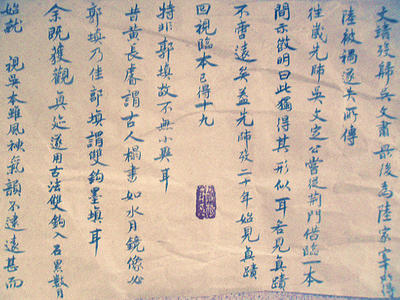 文靖歿歸吳文肅最後為陸冢宰所得
陸被禍遂失所傳
往歲先師吳文定公嘗從荊門借臨一本
間示徵明曰此獨得其形似耳若見真蹟
不啻遠矣蓋先師歿二十年始見真蹟
回視臨本已得十九
特非郭填故不無小異耳
昔黃長睿謂古人搨書如水月鏡像必
郭填乃佳郭填謂雙鉤墨填耳
余既獲觀真迹遂用古法雙鉤入石累數月
始就視吳本雖風神氣韻不逮遠甚而